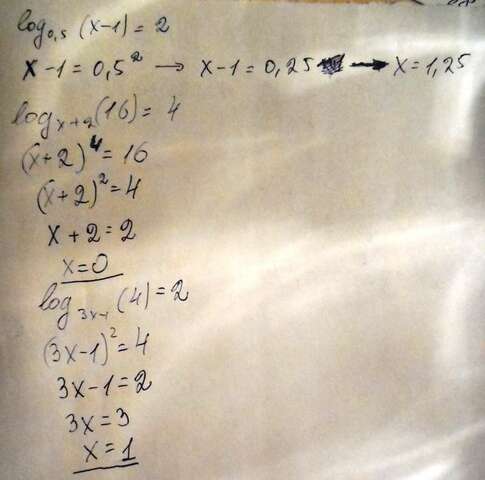 log₀,₅ (x-1) = 2
x-1 = 0,5² → x-1 = 0,25 → x = 1,25
logₓ₊₂ (16) = 4
(x+2)⁴ = 16
(x+2)² = 4
x + 2 = 2
x = 0
log₃ₓ₋₁ (4) = 2
(3x-1)² = 4
3x-1 = 2
3x = 3
x = 1